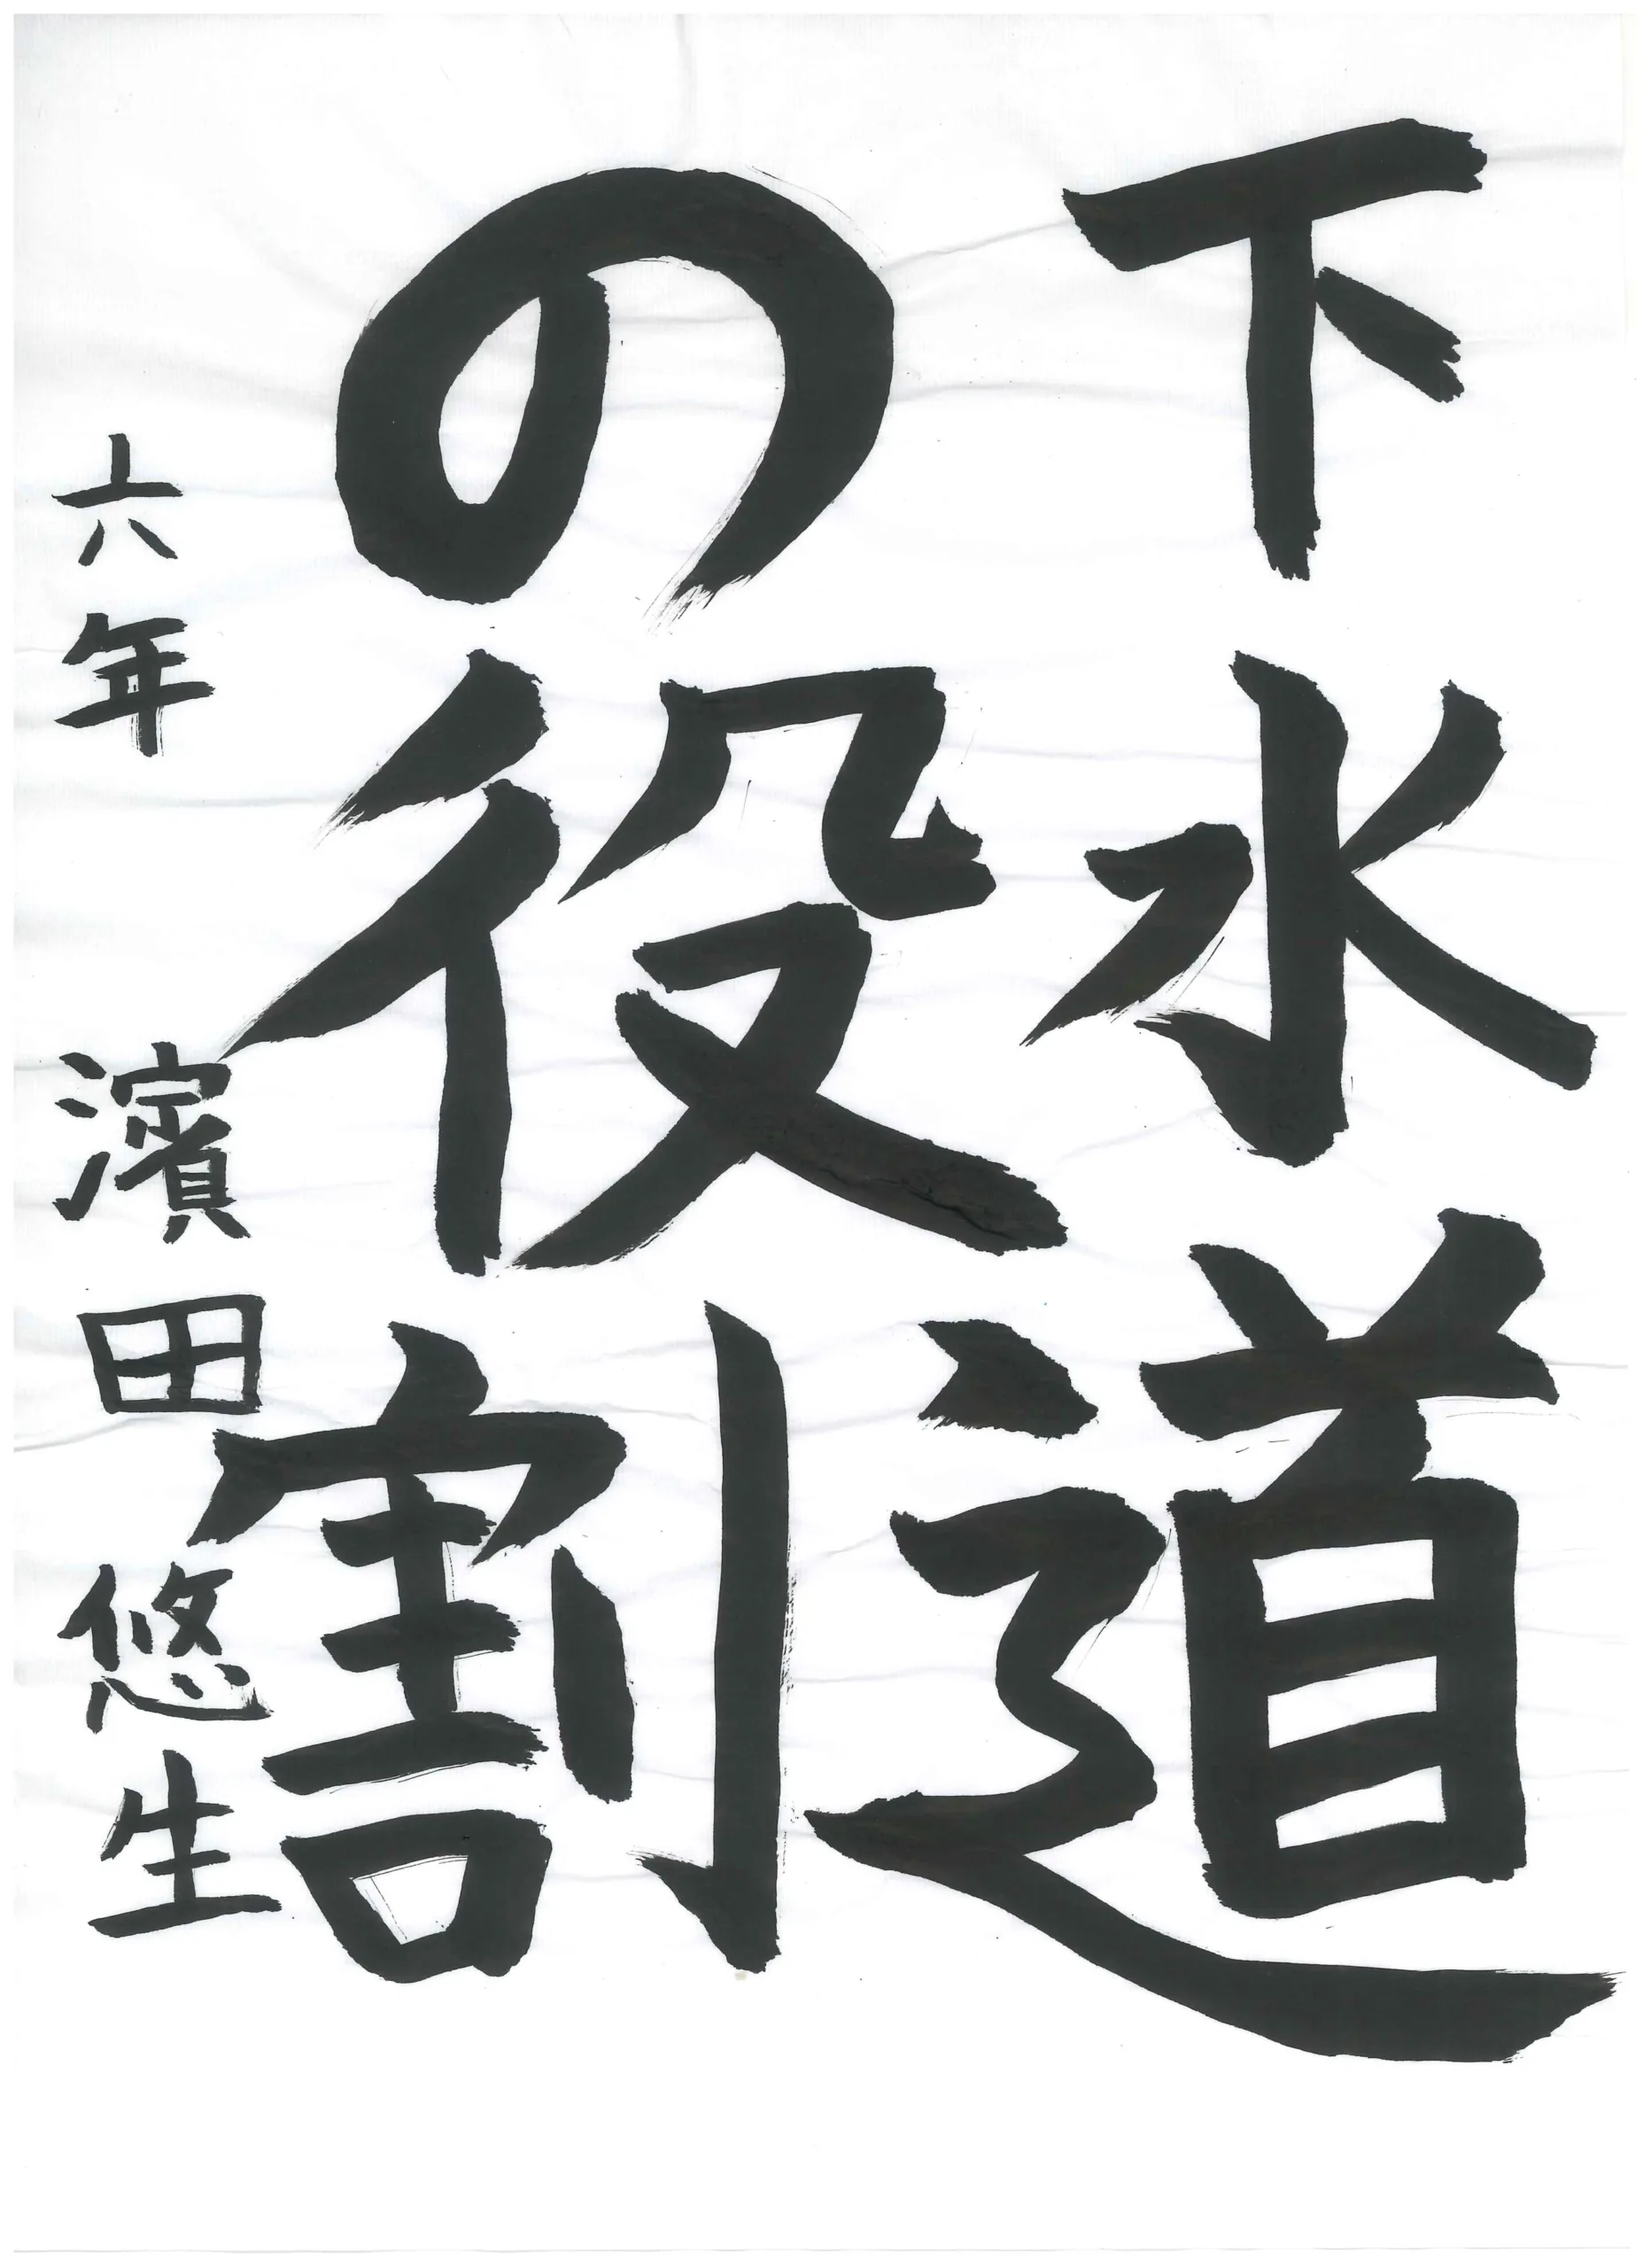 下水道
の役割
六年 濱田悠生